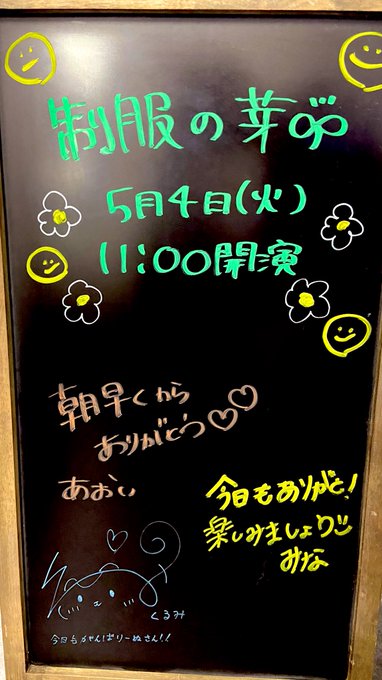 制服の芽
5月4日(火)
11:00開演
朝早くから
ありがとう♡♡
あおい
今日もありがと!
楽しみましょり
みな
くるみ
今日もがんばりーぬさん!!